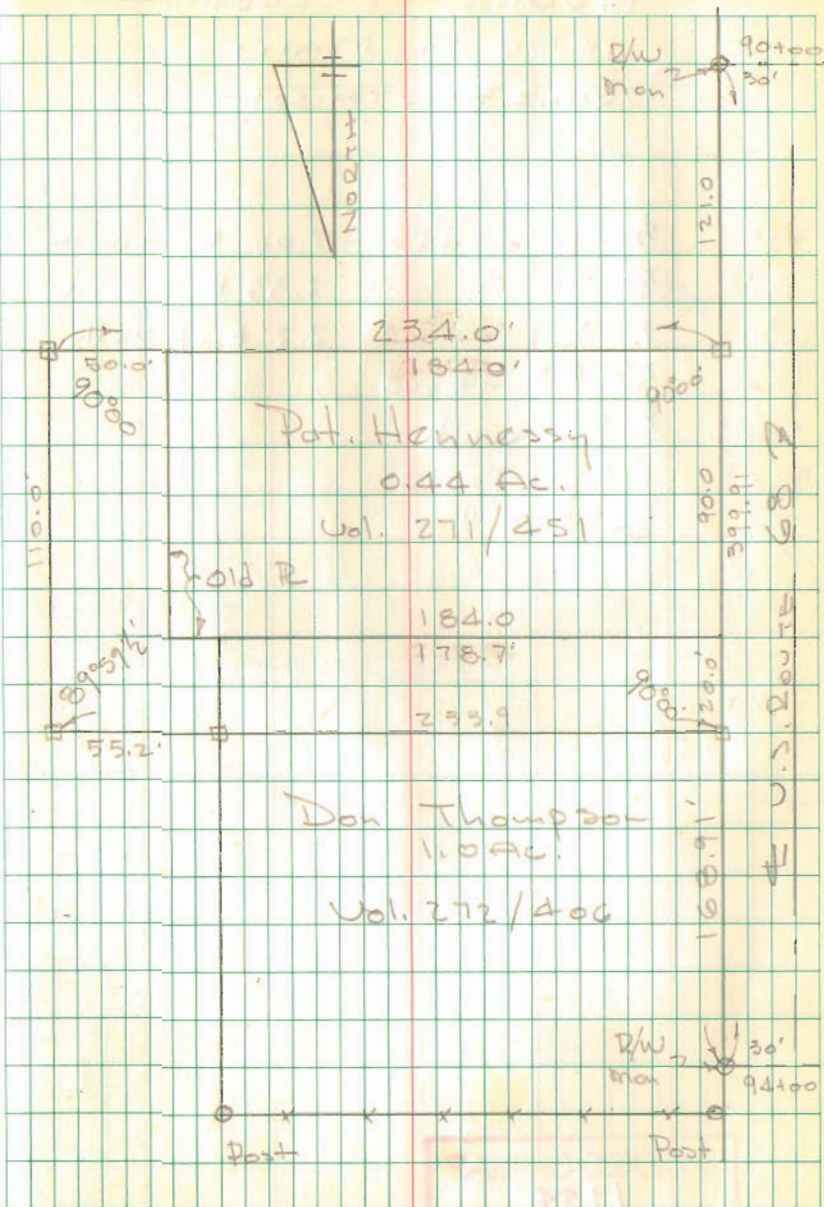 R/W
Mon
90+00
30'
NORTH
121.0
234.0'
50.0'
184.0'
90°00'
90°00'
Pat. Hennessy
0.44 Ac.
Vol. 271/451
110.0'
90.0
399.91
Old PL
184.0
178.7'
89°59½'
90°00'
20.0'
233.9
55.2'
℄ U.S. Route 68
Don Thompson
1.0 Ac.
Vol. 272/406
168.91'
R/W
Mon
30'
94+00
Post
Post